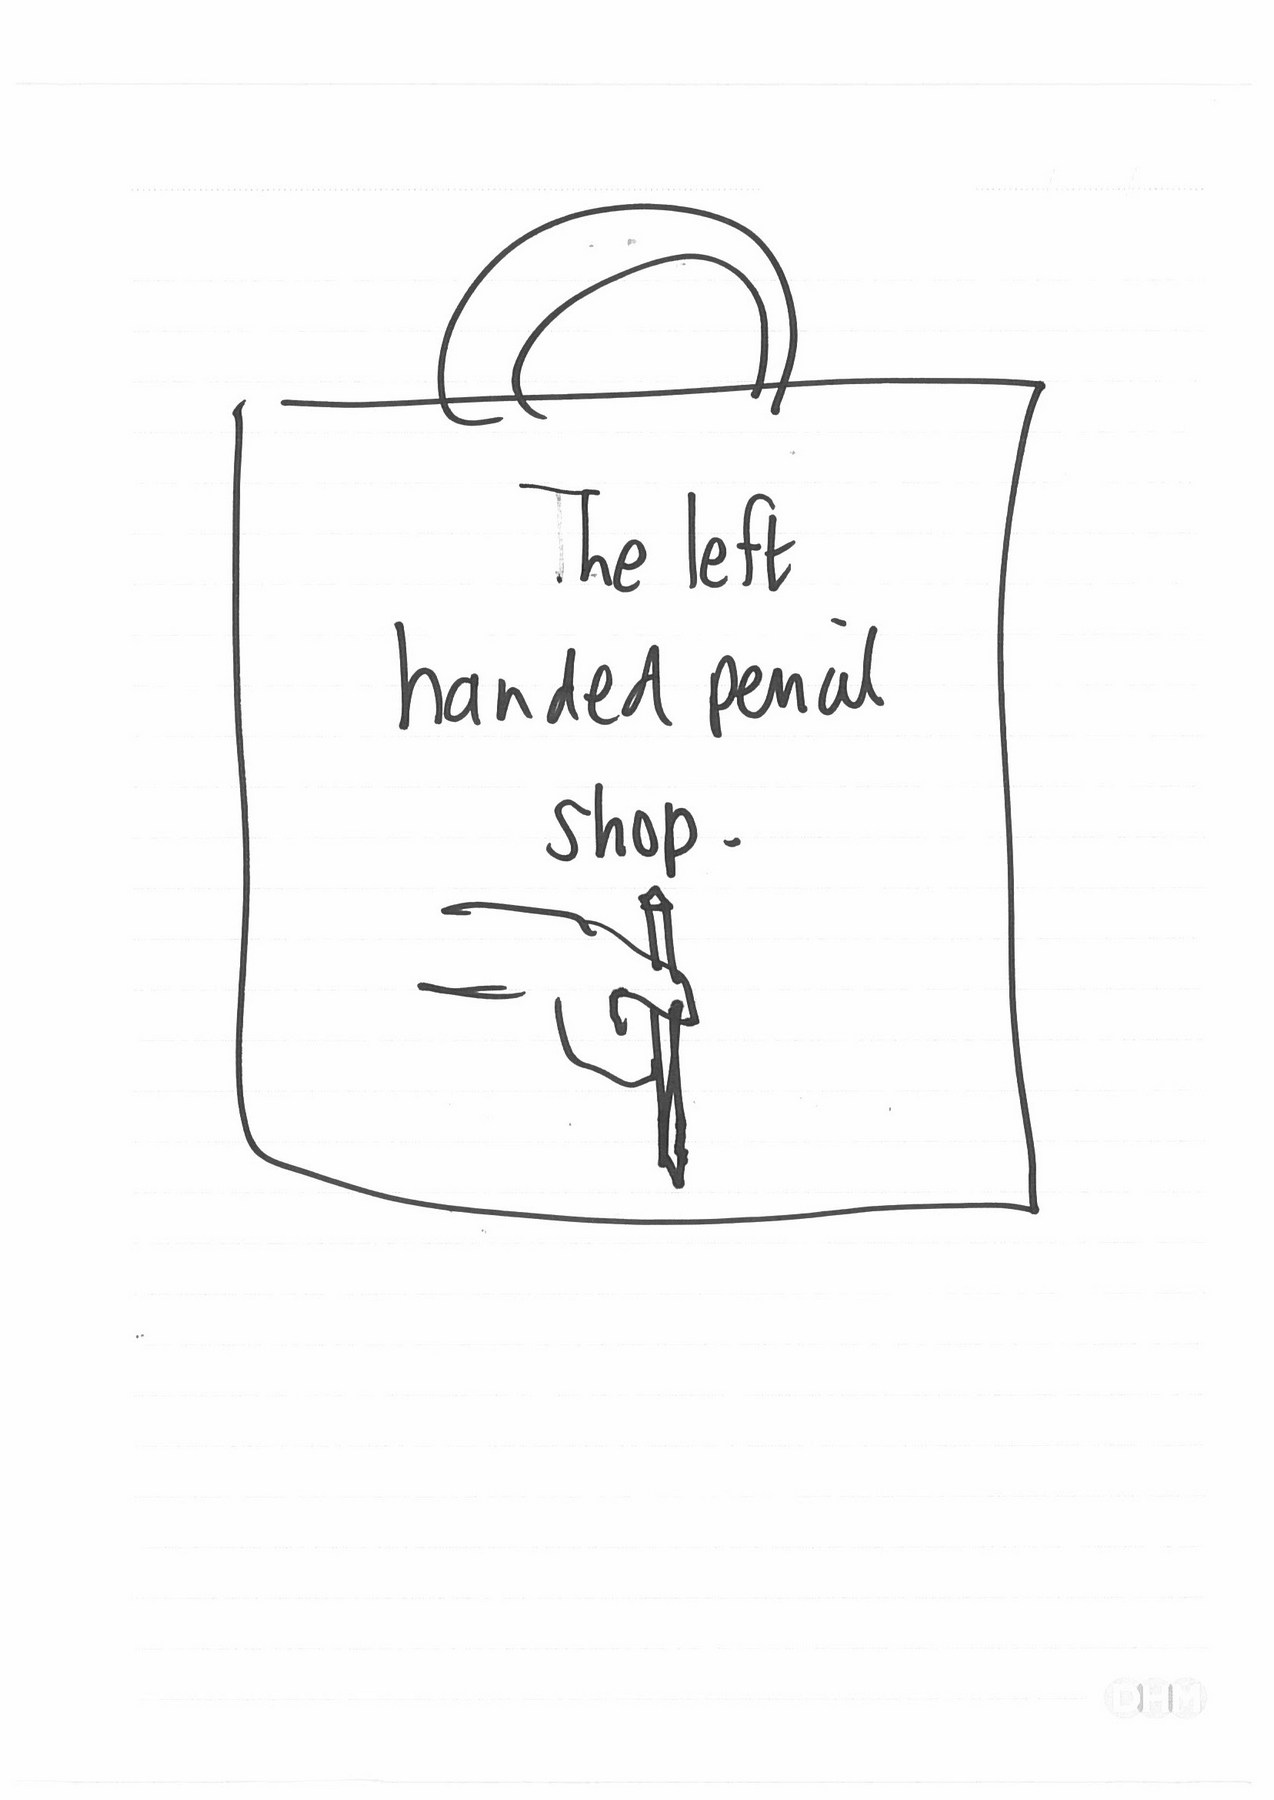 The left
handed pencil
shop.
DHM